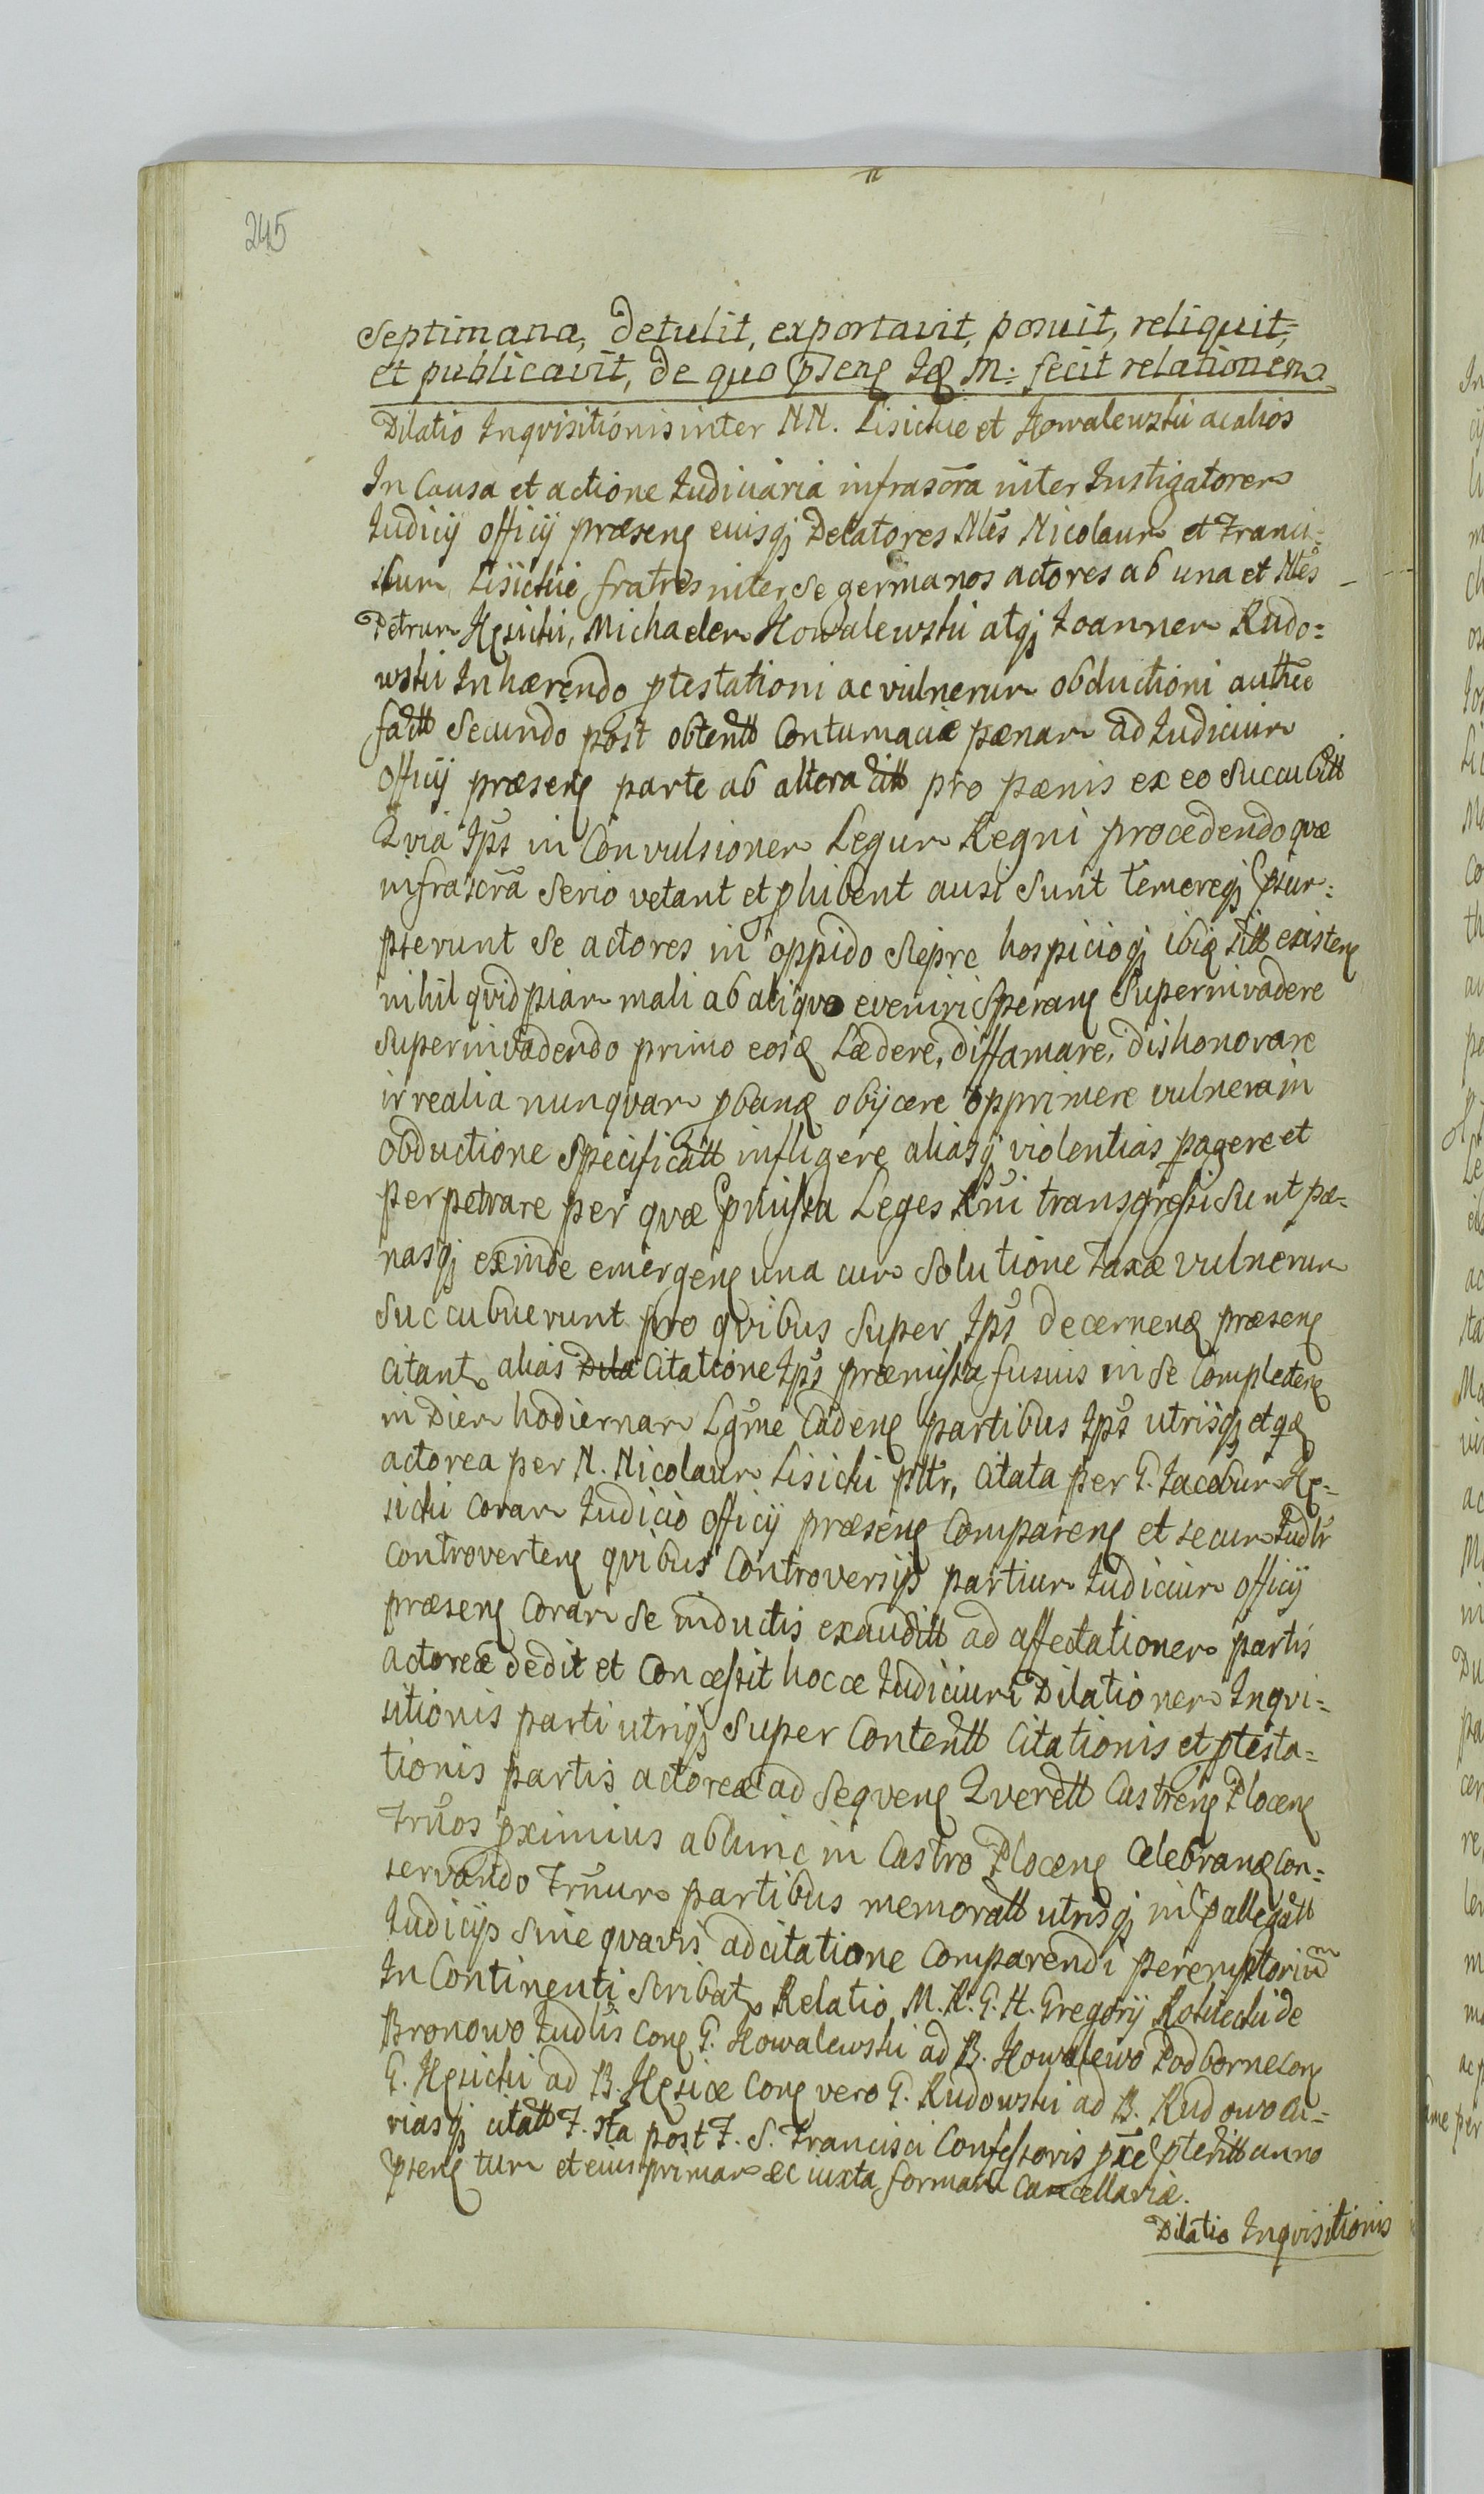 245
Septimana, Detulit, exportavit, posuit, reliquit,
et publicavit, de quo pseng Idq M: fecit relationem
Dilatio Inqvisitionis inter NN. Lisickie et Kowalewski ac alios
In Causa et actione Iudiciaria infrascra inter Instigatorem
Iudicij officij præseng eiusq Delatores Nles Nicolaum et Franci=
skum Lisickie fratres inter se germanos actores ab una et Nles
Petrum Kęsicki, Michaelem Kowalewski atq Ioannem Rudo=
wski Inhærendo ptestationi ac vulnerum obductioni authce
fatt Secundo post obtentt Contumaciæ pænam ad Iudicium
Officij præseng parte ab altera citt pro pænis ex eo Succubitt
Qvia Ips in Convulsionem Legum Regni procedendo qvæ
infrascra Serio vetant et phibent ausi Sunt temereq psum=
pserunt Se actores in oppido Siepre hospicioq ibiq existeng
nihil qvidpiam mali ab aliqvo eveniri Sperang Superinvadere
Superinvadendo primo eosq Lædere, diffamare, dishonorare
irrealia nunqvam pbanq obijcere opprimere vulnera in
obductione Specificatt infligere aliasq violentias pagere et
perpetrare per qvæ pmissa Leges Rni transgressi Sunt pæ=
nasq exinde emergeng una cum Solutione taxæ vulnerum
Succubuerunt pro qvibus Super Ips decernenq præseng
citant alias Dila Citatione Ips præmissa fusius in Se Completeng
in Diem hodiernam Lgme Cadeng partibus Ips utrisq etqq
actorea per N. Nicolaum Lisicki pttr, Citata per G. Iacobum Kę=
sicki coram Iudicio officij præseng Compareng et secum Iudlr
Controverteng qvibus Controversijs partium Iudicium officij
præseng Coram Se inductis exauditt ad affectationem partis
actoreæ dedit et Concessit hocce Iudicium Dilationem Inqvi=
sitionis parti utriq Super Contentt Citationis et ptesta=
tionis partis actoreæ ad Seqveng Qverett Castreng Ploceng
Trnos pximius abhinc in Castro Ploceng Celebranq Con=
servando Trnum partibus memoratt utrisq in pallegatt
Iudicijs Sine qvavis adcitatione Comparendi peremptorium
In Continenti Scribat Relatio M. R. G. H. Gregorij Rościecki de
Bronowo Iudlis Cong G. Kowalewski ad B. Kowalewo Podborne Cong
G. Kęsicki ad B. Kęsice Cong vero G. Rudowski ad B. Rudowo Cu=
riasq citatt F. 3tia post F. S. Francisci Confessoris pxe pteritt anno
pseng tum et eius primam ec iuxta formam Cancellariæ.
Dilatio Inqvisitionis